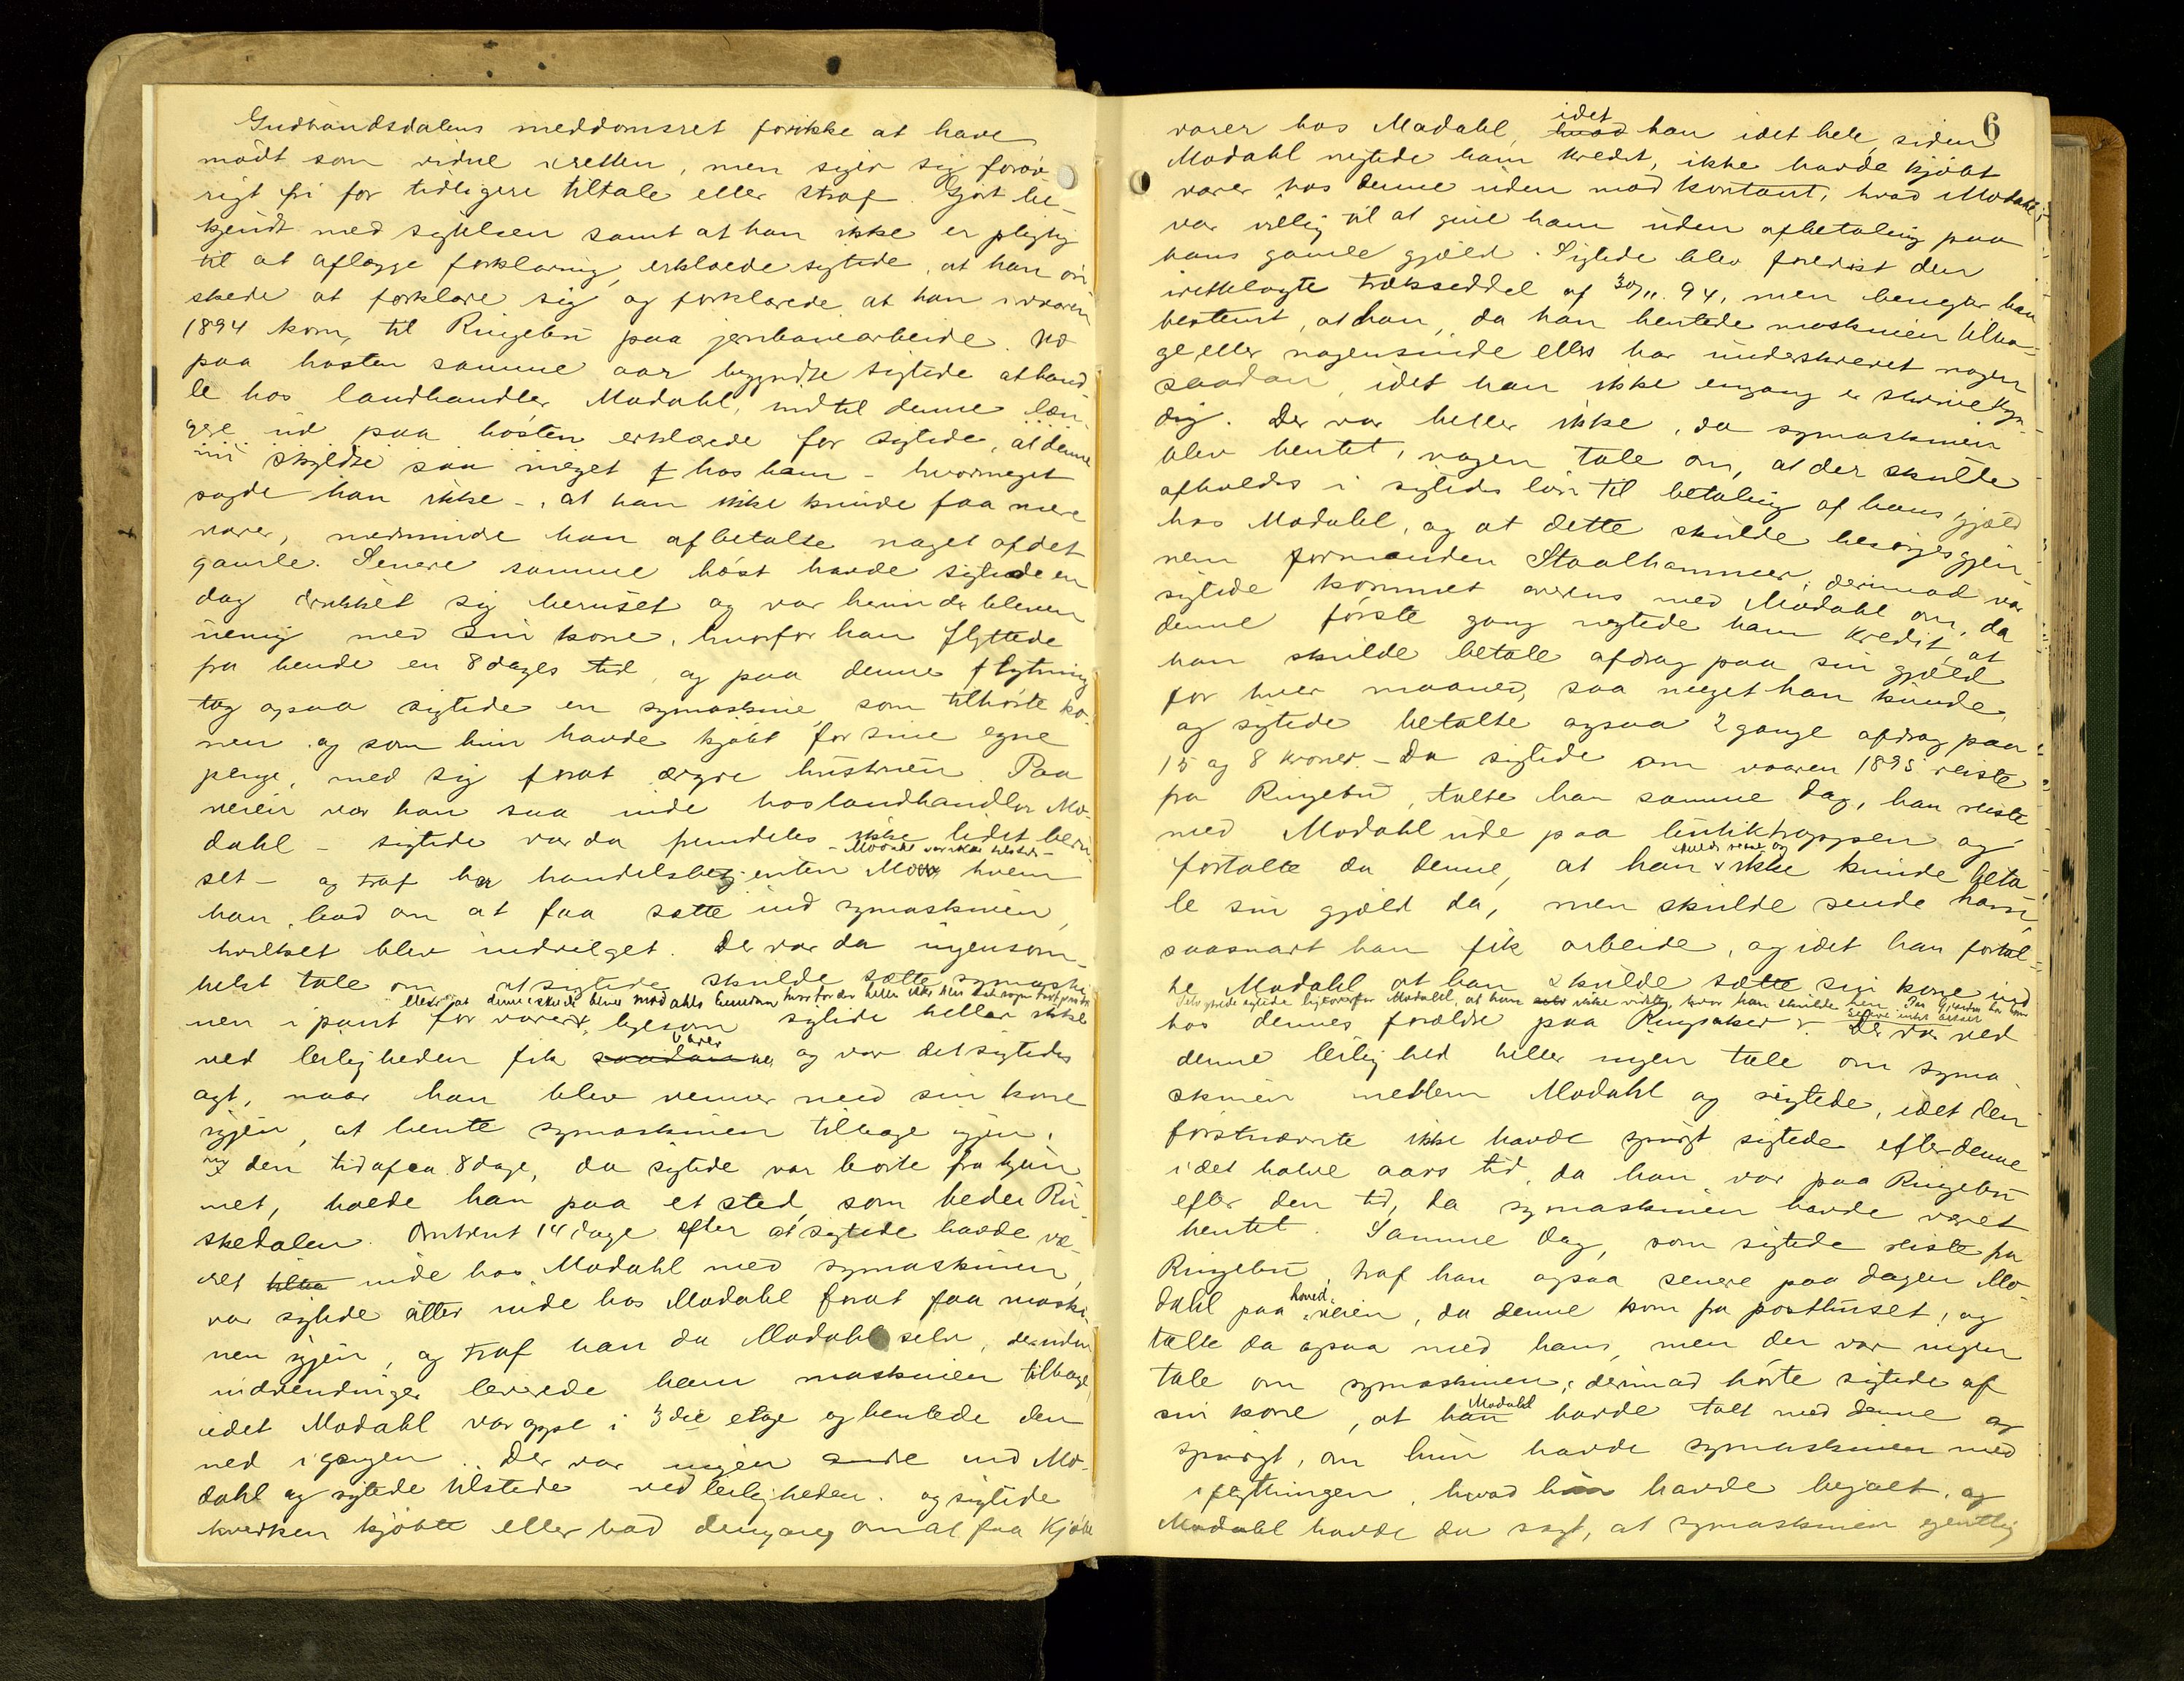 Gudbrandsdalens meddomsret forikke at have
mødt som vidne i retten, men siger sig forøv-
rigt fri for tidligere tiltale eller straf. Gjort be-
kjendt med sigtelsen samt at han ikke er pligtig
til at aflægge forklaring, erklærede sigtede, at han øn-
skede at forklare sig og forklarede at han i vaaren
1894 kom til Ringebu paa jernbanearbeide. Ud
paa høsten samme aar begyndte sigtede at hand-
le hos landhandler Modahl, indtil denne læn-
gere ud paa høsten erklærede for sigtede, at denne
nu skyldte saa meget hos ham - hvormeget
sagde han ikke -, at han ikke kunde faa mere
varer, medmindre han afbetalte noget af det
gamle. Senere samme høst havde sigtede en
dag drukket sig beruset og var herunder bleven
uenig med sin kone, hvorfor han flyttede
fra hende en 8 dages tid, og paa denne flytning
tog ogsaa sigtede en symaskine, som tilhørte ko-
nen og som hun havde kjøbt for sine egne
penge, med sig forat ærgre hustruen. Paa
veien var han saa inde hos landhandler Mo-
dahl - sigtede var da fremdeles ikke lidet beru-
- Modahl var ikke tilstede -
set - og traf her handelsbetjenten Moe hvem
han bad om at faa sætte ind symaskinen,
hvilket blev indvilget. Der var da ingensom-
helst tale om at sigtede skulde sætte symaski-
eller at denne skulde blive Modahls eiendom hvorfor der heller ikke blev
nen i pant for varer, ligesom sigtede heller ikke
varer
ved leiligheden fik saadanne, og var det sigtedes
agt, naar han blev venner med sin kone
igjen, at hente symaskinen tilbage igjen.
den tid af ca. 8 dage, da sigtede var borte fra hjem-
met, boede han paa et sted, som heder Ru-
skedalen. Omtrent 14 dage efter at sigtede havde væ-
ret tilba inde hos Modahl med symaskinen,
var sigtede atter inde hos Modahl forat faa maski-
nen igjen, og traf han da Modahl selv, der uden
indvendinger leverede ham maskinen tilbage,
idet Modahl var oppe i 3die etage og hentede den
ned i gangen. Der var ingen andre end Mo-
dahl og sigtede tilstede ved leiligheden, og sigtede
hverken kjøbte eller bad dengang om at faa kjøbe
6
idet
varer hos Modahl, hvad han idet hele, siden
Modahl negtede ham kredit, ikke havde kjøbt
varer hos denne uden mod kontant, hvad Modahl
var villig til at give ham uden afbetaling paa
hans gamle gjæld. Sigtede blev forevist den
irettelagte trækseddel af 30/11. 94, men benegter han
bestemt, at han, da han hentede maskinen tilba-
ge, eller nogensinde ellers har underskrevet nogen
saadan, idet han ikke engang er skrivekyn-
dig. Der var heller ikke, da symaskinen
blev hentet, nogen tale om, at der skulde
afholdes i sigtedes løn til betaling af hans gjæld
hos Modahl, og at dette skulde besørges gjen-
nem formanden Staalhammer; derimod var
sigtede kommet overens med Modahl om, da
denne første gang negtede ham kredit, at
han skulde betale afdrag paa sin gjæld
for hver maaned, saa meget han kunde,
og sigtede betalte ogsaa 2 gange afdrag paa
15 og 8 kroner. - Da sigtede om vaaren 1895 reiste
fra Ringebu, talte han samme dag, han reiste
med Modahl ude paa butiktrappen og
skulde reise og
fortalte da denne, at han ikke kunde beta-
le sin gjæld da, men skulde sende ham
saasnart han fik arbeide, og idet han fortal-
te Modahl at han skulde sætte sin kone ind
sigtede ligeoverfor Modahl, at han selv ikke vidste, hvor han skulde hen
hos dennes forældre paa Ringsaker. Der var ved
denne leilighed heller ingen tale om syma-
skinen mellem Modahl og sigtede, idet den
førstnævnte ikke havde spurgt sigtede efter denne
i det halve aars tid, da han var paa Ringebu
efter den tid, da symaskinen havde været
hentet. Samme dag, som sigtede reiste fra
Ringebu, traf han ogsaa senere paa dagen Mo-
hoved
dahl paa veien, da denne kom fra posthuset, og
talte da ogsaa med ham, men der var ingen
tale om symaskinen; derimod hørte sigtede af
Modahl
sin kone, at han havde talt med denne og
spurgt, om hun havde symaskinen med
i flytningen, hvad hun havde bejaet, og
Modahl havde da sagt, at symaskinen egentlig